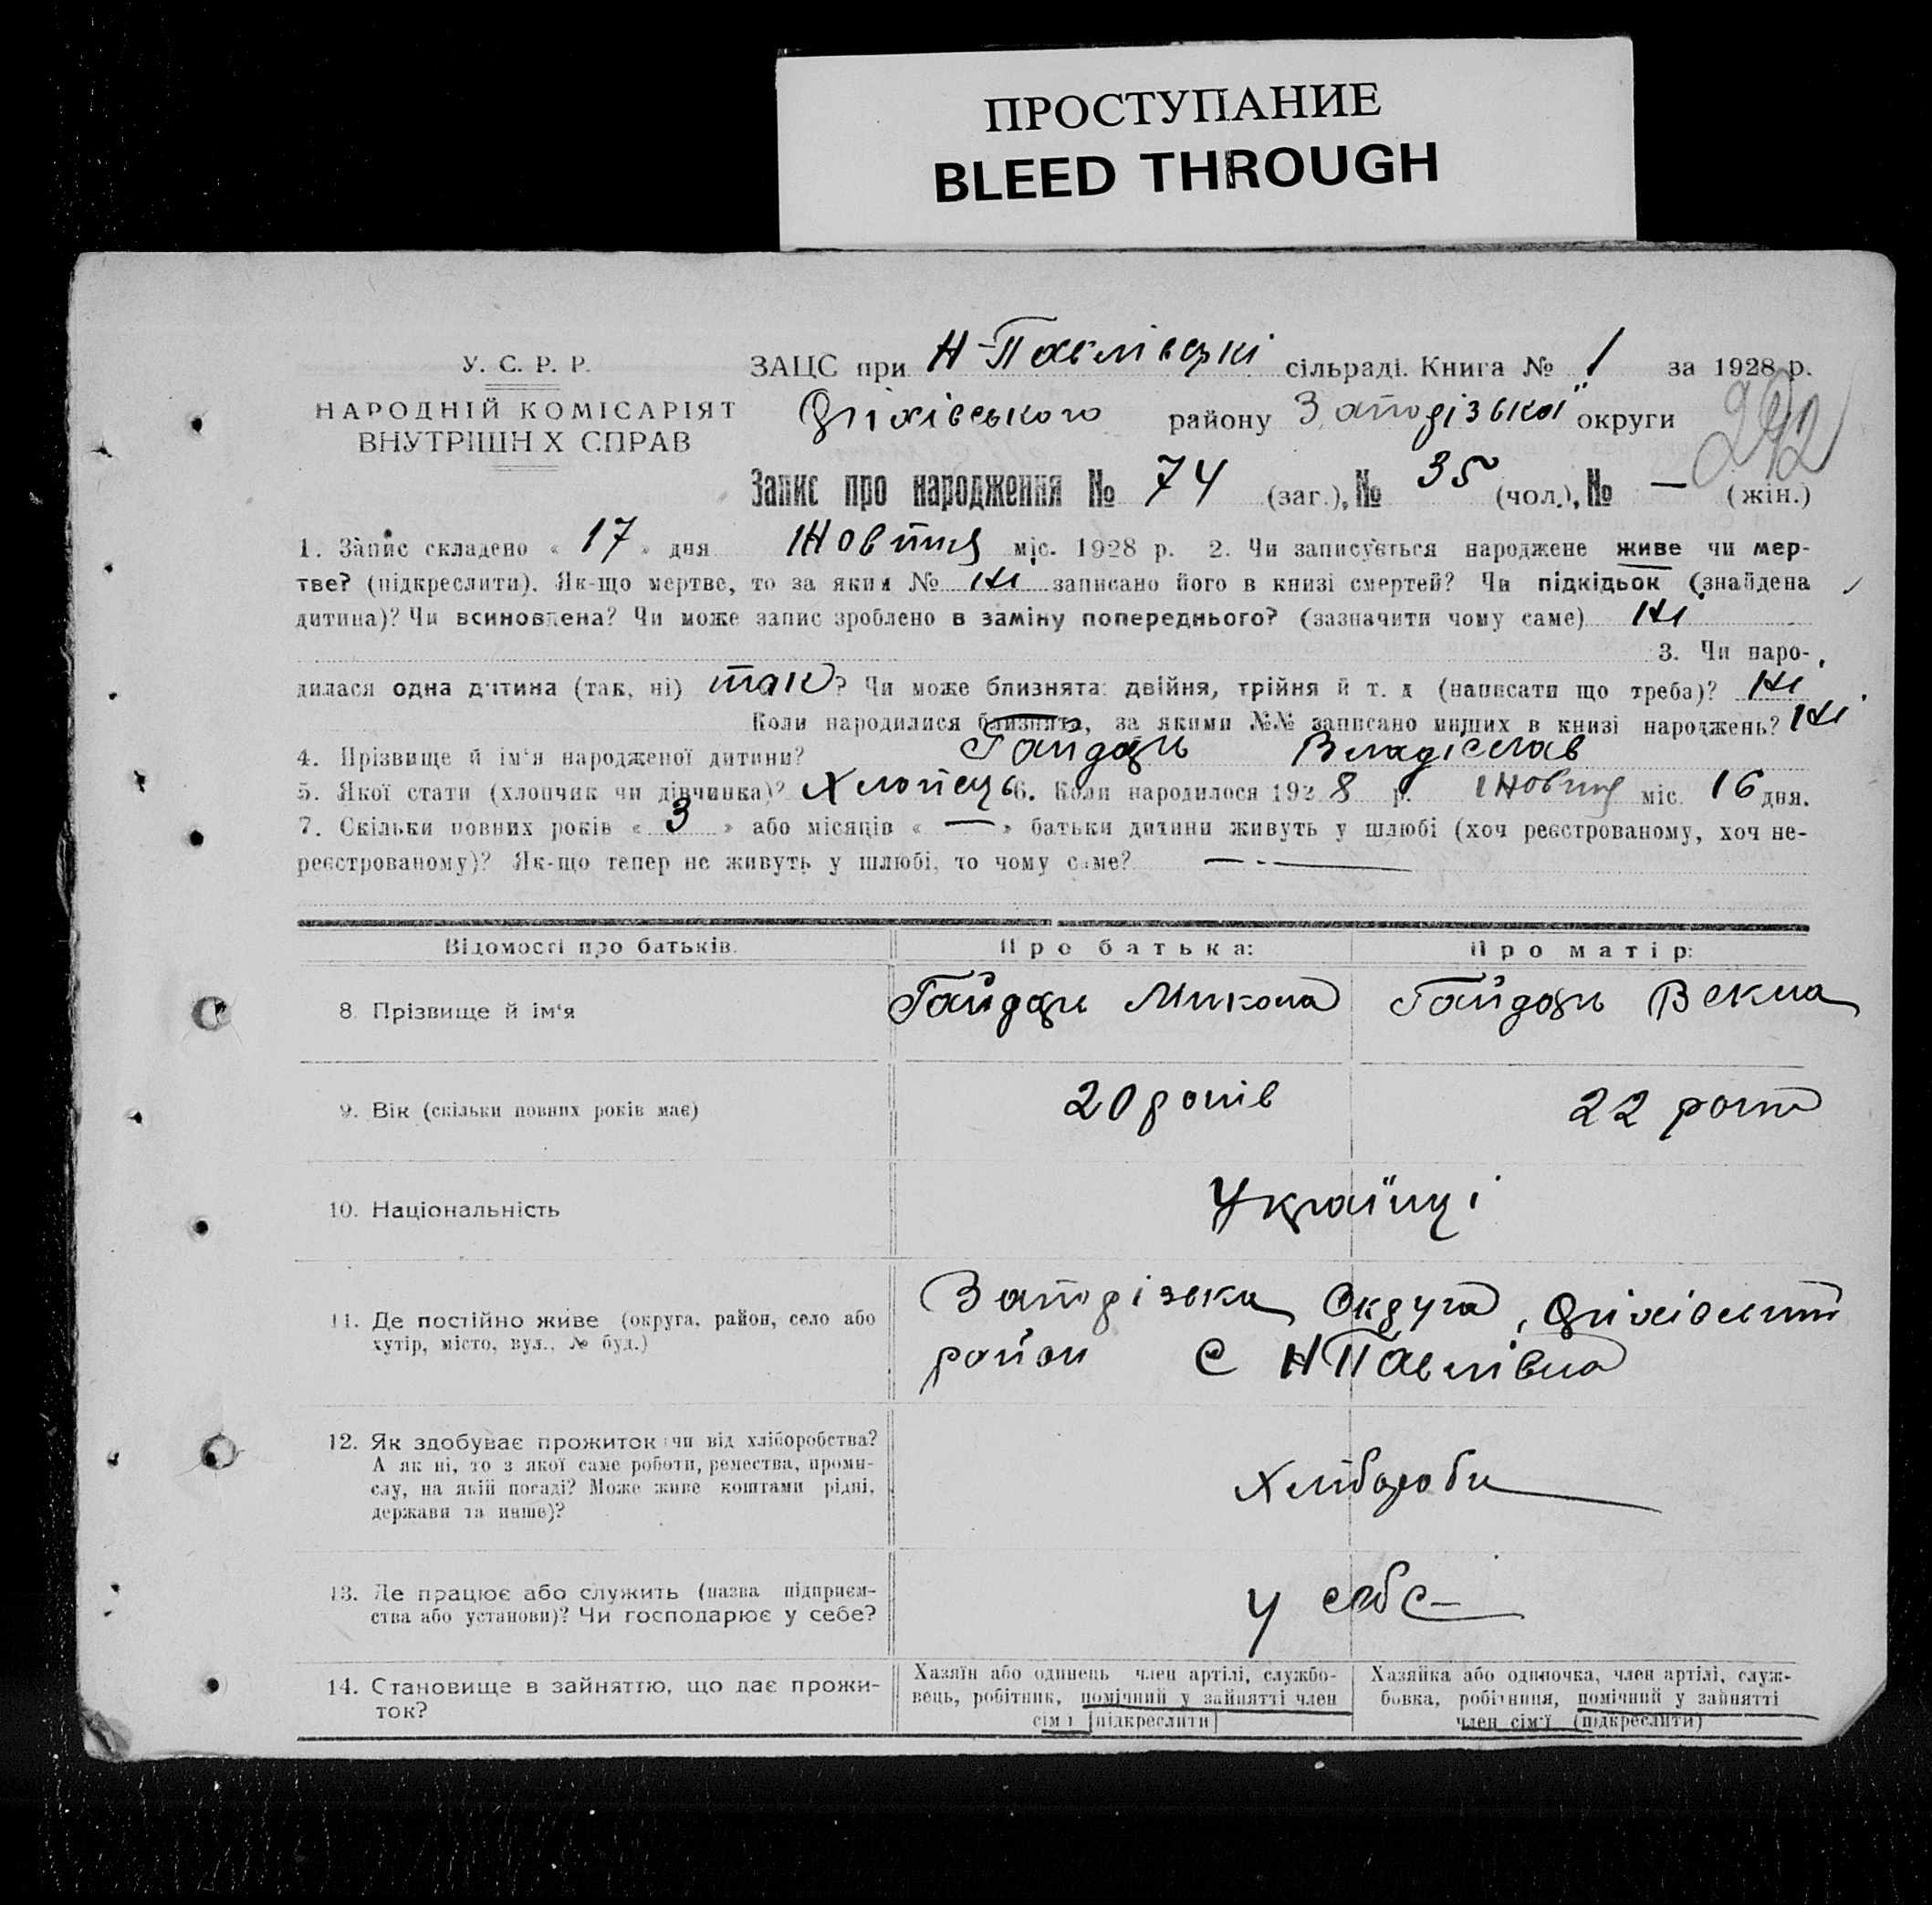 ПРОСТУПАНИЕ
BLEED THROUGH
У. С. Р. Р.
НАРОДНІЙ КОМІСАРІЯТ
ВНУТРІШН Х СПРАВ
ЗАЦС при Н-Павлівській сільраді. Книга № 1 за 1928 р.
Оріхівського району Запорізької округи
292
Запис про народження № 74 (заг.), № 35 (чол.), № — (жін.)
1. Запис складено « 17 » дня Жовтня міс. 1928 р. 2. Чи записується народжене живе чи мер-
тве? (підкреслити). Як-що мертве, то за яким № ні записано його в книзі смертей? Чи підкідьок (знайдена
дитина)? Чи всиновлена? Чи може запис зроблено в заміну попереднього? (зазначити чому саме) ні
3. Чи наро-
дилася одна дитина (так, ні) так? Чи може близнята: двійня, трійня й т. д (написати що треба)? ні
Коли народилися близнята, за якими №№ записано инших в книзі народжень? ні
4. Прізвище й ім'я народженої дитини? Гайдарь Владіслав
5. Якої стати (хлопчик чи дівчинка)? Хлопець 6. Коли народилося 1928 р. Жовтня міс. 16 дня.
7. Скільки повних років « 3 » або місяців « — » батьки дитини живуть у шлюбі (хоч реєстрованому, хоч не-
реєстрованому)? Як-що тепер не живуть у шлюбі, то чому саме? —
Відомості про батьків. Про батька: Про матір:
8. Прізвище й ім'я Гайдарь Микола Гайдарь Векла
9. Вік (скільки повних років має) 20 років 22 роки
10. Національність Українці
11. Де постійно живе (округа, район, село або
хутір, місто, вул., № буд.)
Запорізька Округа, Оріхівський
район С НПавлівка
12. Як здобуває прожиток чи від хліборобства?
А як ні, то з якої саме роботи, ремества, проми-
слу, на якій посаді? Може живе коштами рідні,
держави та инше)?
Хлібороби
13. Де працює або служить (назва підприєм-
ства або установи)? Чи господарює у себе?
у себе
14. Становище в зайняттю, що дає прожи-
ток?
Хазяїн або одинець член артілі, службо-
вець, робітник, помічний у зайнятті член
сім ї (підкреслити)
Хазяйка або одиночка, член артілі, служ-
бовка, робітниця, помічний у зайнятті
член сім'ї (підкреслити)